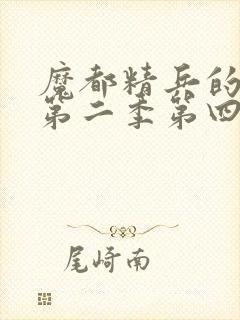 魔都精兵的
第二季第四
尾崎南